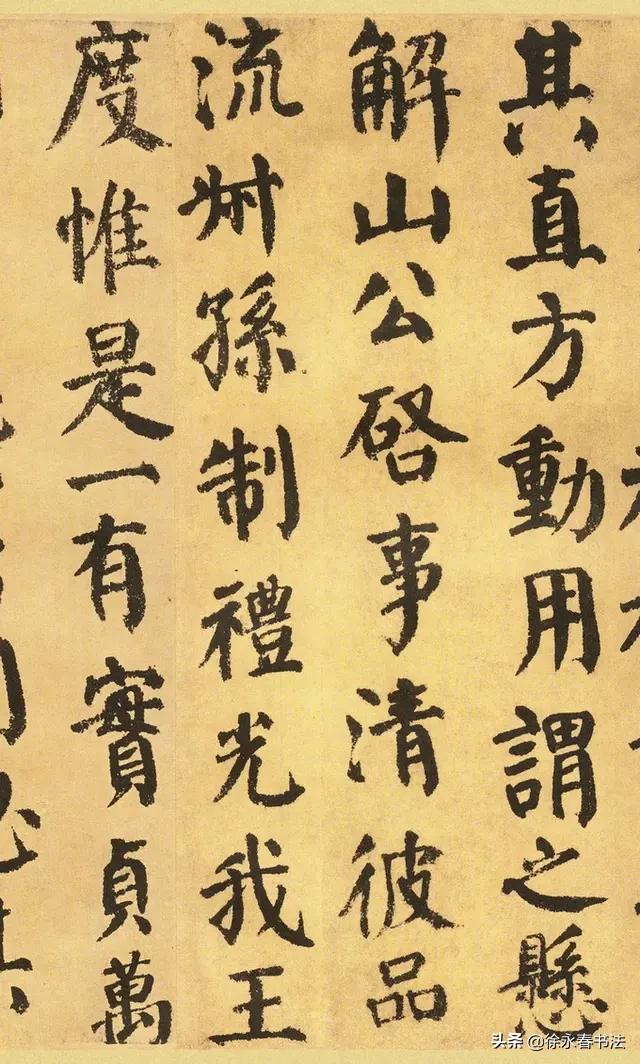 其直方動用謂之懸
解山公啓事清彼品
流叔孫制禮光我王
度惟是一有實貞萬
头条 @徐永春书法